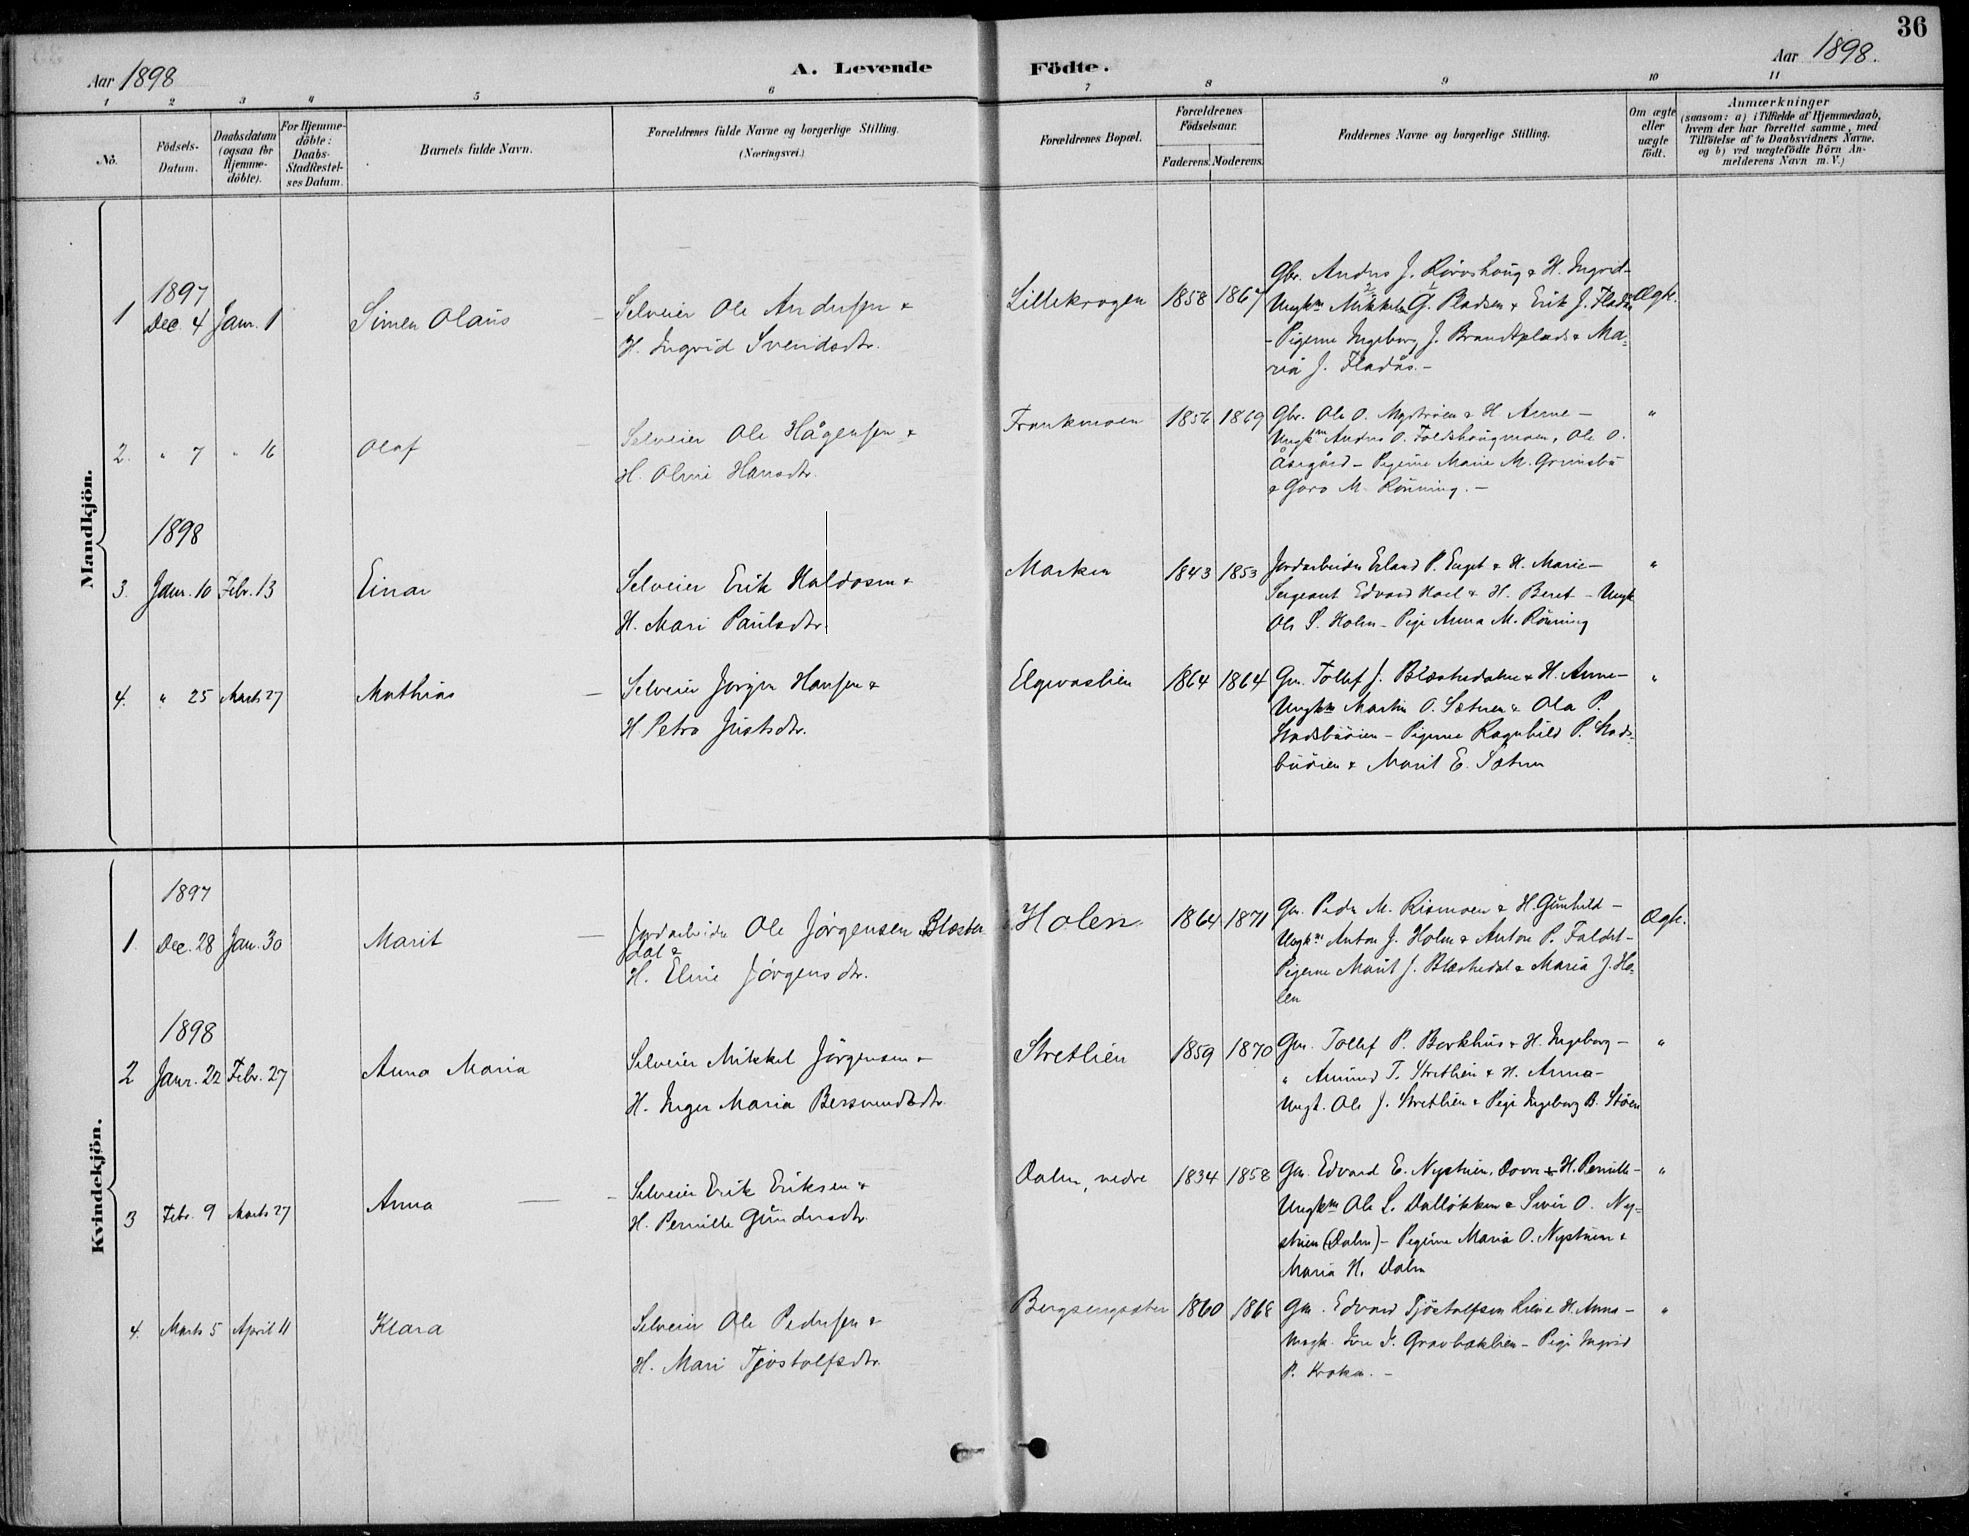 36
Aar 1898
A. Levende
Födte.
Aar 1898.
1 2 3 4 5 6 7 8 9 10 11
No.
Födsels-
Datum.
Daabsdatum
(ogsaa for
Hjemme-
döbte).
For Hjemme-
döbte:
Daabs-
Stadfæstel-
ses Datum.
Barnets fulde Navn.
Forældrenes fulde Navne og borgerlige Stilling.
(Næringsvei.)
Forældrenes Bopæl.
Forældrenes
Födselsaar.
Faderens. Moderens.
Faddernes Navne og borgerlige Stilling.
Om ægte
eller
uægte
födt.
Anmærkninger
(saasom: a) i Tilfælde af Hjemmedaab,
hvem der har forrettet samme, med
Tilföielse af to Daabsvidners Navne.
og b) ved uægtefödte Börn An-
melderens Navn m. V.)
Mandkjön.
1
1897
Dec. 4
Janr. 1
Simen Olaus
Selveier Ole Andersen &
H. Ingrid Svendsdtr.
Lillekrogen
1858
1867
Gbr. Anders J. Kivoshoug & H. Ingrid-
Ungkm Mikkel G. Pladsen & Erik J. Fladås
- Pigerne Ingeborg J. Brandtplads & Ma-
ria J. Fladås.-
Ægte.
2.
" 7
" 16
Olaf
Selveier Ole Hågensen &
H. Oline Hansdtr.
Frankmoen
1856
1869
Gbr. Ole O. Nystuen & H Anne-
Ungkm Anders O. Foldshaugmoen, Ole O.
Åsegård - Pigerne Marie M. Grimsbu
& Goro M. Rönning.-
"
1898
3.
Janr. 10
Febr. 13
Einar
Selveier Erik Haldosen &
H. Mari Paulsdtr.
Marken
1843
1853
Jordarbeider Erland P. Enget & H. Marie-
Sergeant Edvard Hoel & H. Beret - Ungk
Ole S. Holen - Pige Anna M. Rönning
"
4.
" 25
Marts 27
Mathias
Selveier Jørgen Hansen &
H Petra Justsdtr.
Elgevaslien
1864
1864
Gm. Tollef J. Blæsterdalen & H. Anne-
Ungkm Martin O. Sætren & Ola P.
Stadsbuöien - Pigerne Ragnhild P. Stads-
buöien & Marit E. Sætren
"
Kvindekjön.
1897
1.
Dec. 28
Jan. 30
Marit
Jordarbeider Ole Jörgensen Blæster
dal &
H. Eline Jörgensdtr.
Holen
1864
1871
Gm. Peder M. Rismoen & H. Gunhild-
Ungkm Anton J. Holen & Anton P. Faldet-
Pigerne Marit J. Blæsterdal & Maria J. Ho-
len
Ægte.
1898
2
Janr. 22
Febr. 27
Anna Maria
Selveier Mikkel Jörgensen &
H. Inger Maria Bersvendsdtr.
Stretlien
1859
1870
Gm. Tollef P. Borkhus & H. Ingeborg-
" Amund T. Stretlien & H. Anna-
Ungk. Ole J. Stretlien & Pige Ingeborg B. Stöen
"
3
Febr. 9
Marts 27
Anna
Selveier Erik Eriksen &
H. Pernille Gundersdtr.
Dalen, nedre
1834
1858
Gm. Edvard E. Nystuen, Dovre & H. Pernille-
Ungkm Ole L. Dalløkken & Siver O. Ny-
stuen (Dalen)- Pigerne Maria O. Nystuen &
Maria H. Dalen
"
4.
Marts 5
April 11
Klara
Selveier Ole Pedersen &
H. Mari Tjøstolfsdtr.
Bergsengsæter
1860
1868
Gm. Edvard Tjöstolfsen Lien & H. Anna-
Ungk. Iver J. Gravbæklien - Pige Ingrid
P. Kroken.-
"